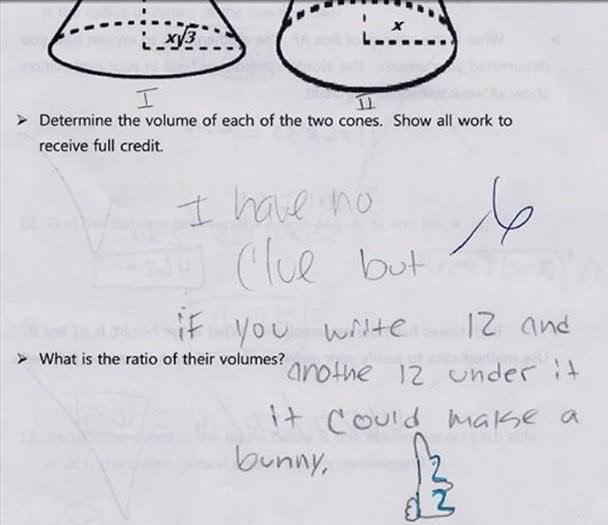 x√3
x
I
II
➢ Determine the volume of each of the two cones. Show all work to
receive full credit.
I have no
Clue but
-6
if you write 12 and
➢ What is the ratio of their volumes?
anothe 12 under it
it could make a
bunny.
12
12